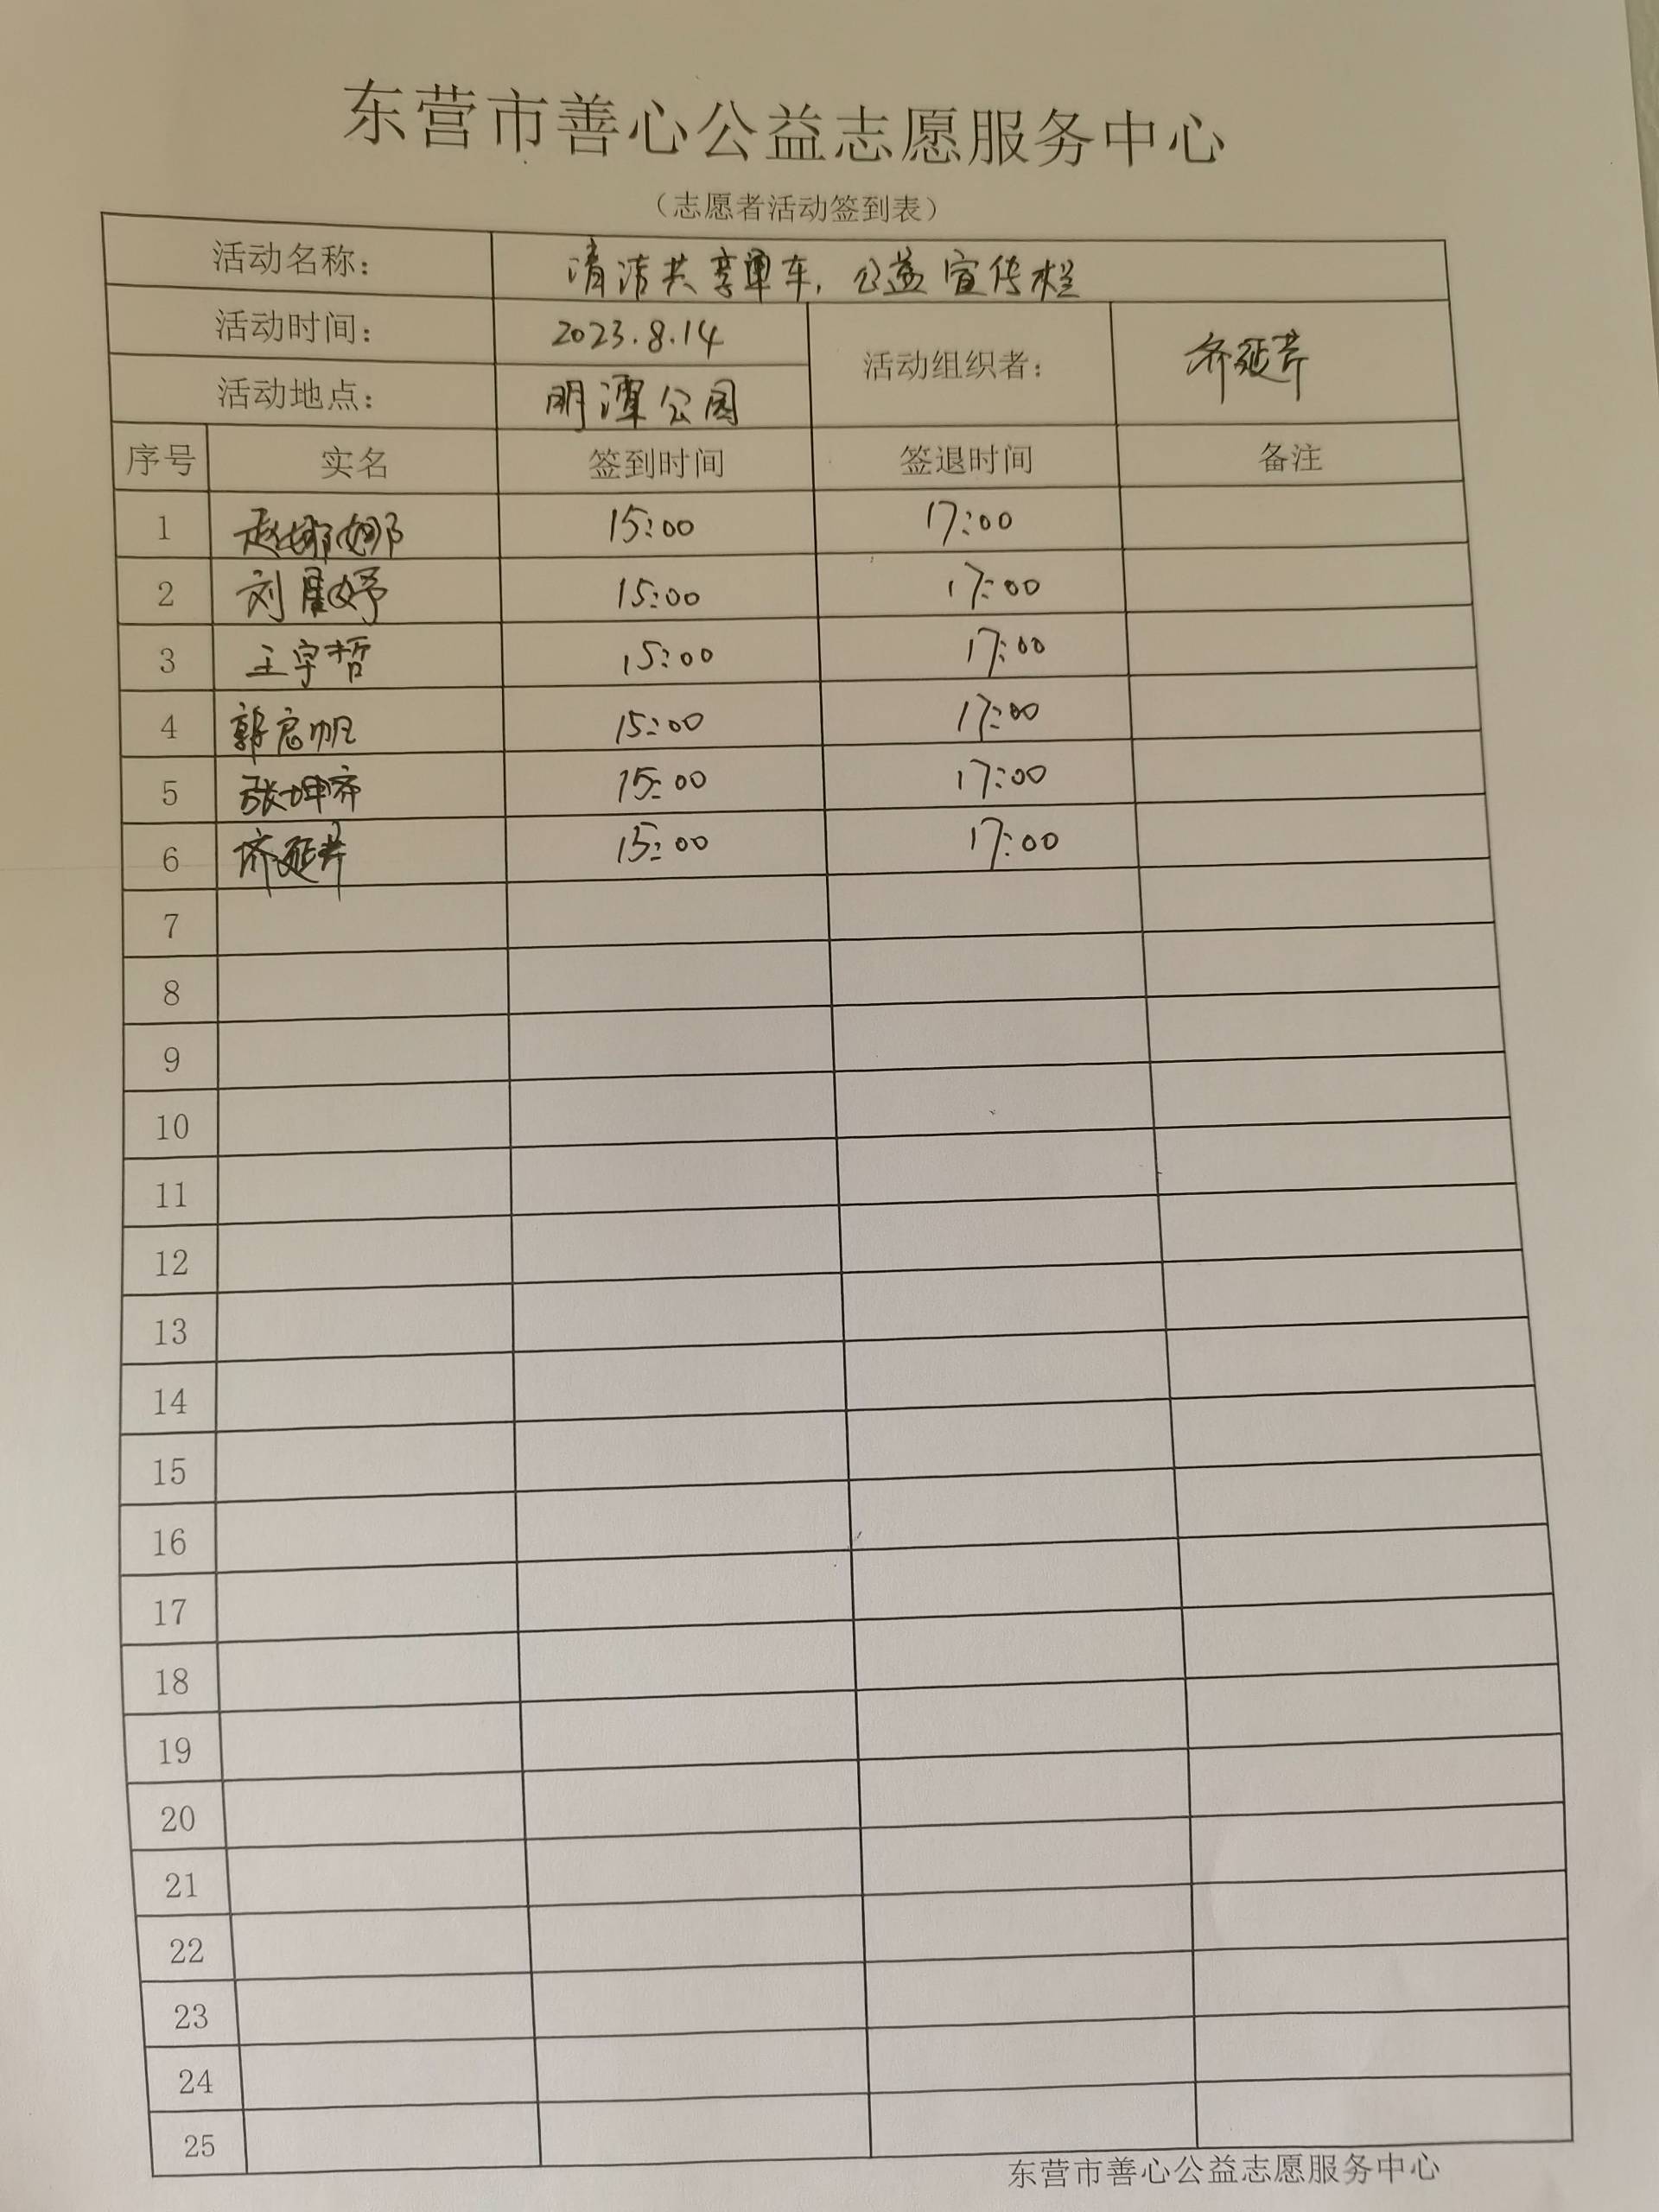 东营市善心公益志愿服务中心
（志愿者活动签到表）
活动名称： 清洁共享单车，公益宣传栏
活动时间： 2023.8.14
活动组织者： 齐延芹
活动地点： 明潭公园
序号 实名 签到时间 签退时间 备注
1 赵娜娜 15:00 17:00
2 刘星妤 15:00 17:00
3 王宇哲 15:00 17:00
4 郭启帆 15:00 17:00
5 张坤齐 15:00 17:00
6 齐延芹 15:00 17:00
7
8
9
10
11
12
13
14
15
16
17
18
19
20
21
22
23
24
25
东营市善心公益志愿服务中心